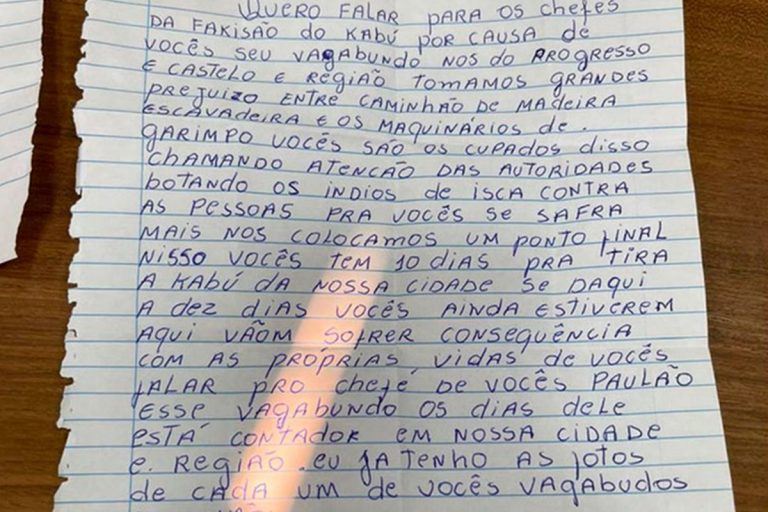 QUERO FALAR PARA OS CHEFES
DA FAKISÃO DO KABÚ POR CAUSA de
VOCÊS SEU VAGABUNDO NOS DO PROGRESSO
E CASTELO E REGIÃO TOMAMOS GRANDES
PREJUIZO ENTRE CAMINHÃO DE MADEIRA
ESCAVADEIRA E OS MAQUINÁRIOS de.
GARIMPO VOCÊS SÃO OS CUPADOS disso
CHAMANDO ATENCÃO DAS AUTORIDADES
BOTANDO OS ÍNDIOS de ISCA CONTRA
AS PESSOAS PRA VOCÊS SE SAFRA
MAIS NOS COLOCAMOS UM PONTO FINAL
NISSO VOCÊS TEM 10 DIAS PRA TIRA
A KABÚ DA NOSSA CIDADE SE DAQUI
A dez dias VOCÊS AINDA ESTIVEREM
AQUI VÃOM SOFRER CONSEQUÊNCIA
COM AS PRÓPRIAS VIDAS de VOCÊS
FALAR PRO CHEFE DE VOCÊS PAULÃO
ESSE VAGABUNDO OS DIAS DELE
ESTÁ CONTADOR EM NOSSA CIDADE
E. REGIÃO. EU JA TENHO AS FOTOS
de CADA UM de VOCÊS VAGABUDOS